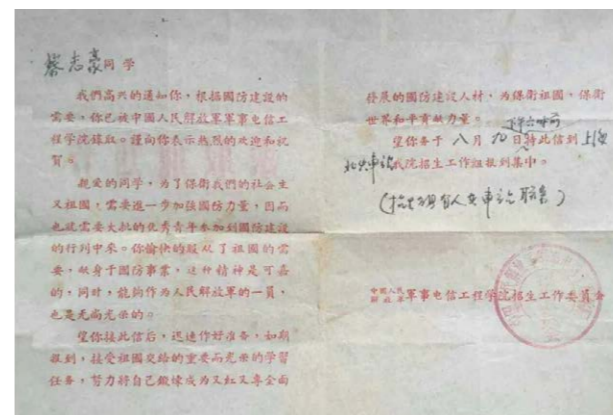 蔡志豪同学
我們高兴的通知你，根据國防建設的
需要，你已被中國人民解放軍軍事电信工
程学院錄取。謹向你表示熱烈的欢迎和祝
賀。
親爱的同学，为了保衛我們的社会主
义祖國，需要進一步加强國防力量，因而
也就需要大批的优秀青年参加到國防建設
的行列中来。你愉快的服从了祖國的需
要，献身于國防事業，这种精神是可嘉
的，同时，能夠作为人民解放軍的一員，
也是无尚光荣的。
望你接此信后，迅速作好准备，如期
报到，接受祖國交給的重要而光荣的学習
任务，努力將自己鍛煉成为又紅又專全面
發展的國防建設人材，为保衛祖國，保衛
世界和平貢献力量。
下午六时前
望你务于八月九日持此信到上海
北火車站我院招生工作組报到集中。
有人在車站
中國人民解放軍軍事电信工程学院招生工作委員会